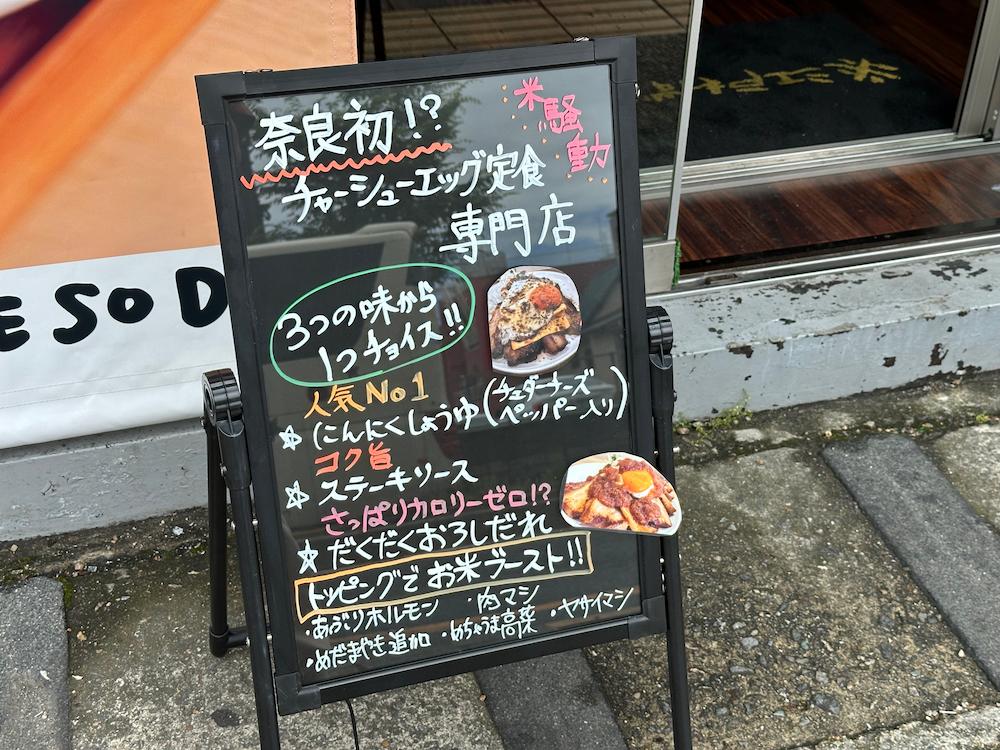 奈良初!?
米騒動
チャーシューエッグ定食
専門店
3つの味から
1つチョイス!!
人気No1
☆ にんにくしょうゆ(チェダーチーズ
ペッパー入り)
コク旨
☆ ステーキソース
さっぱりカロリーゼロ!?
☆ だくだくおろしだれ
トッピングでお米ブースト!!
・あぶりホルモン ・肉マシ
・めだまやき追加 ・めちゃうま高菜 ・ヤサイマシ
E SO D